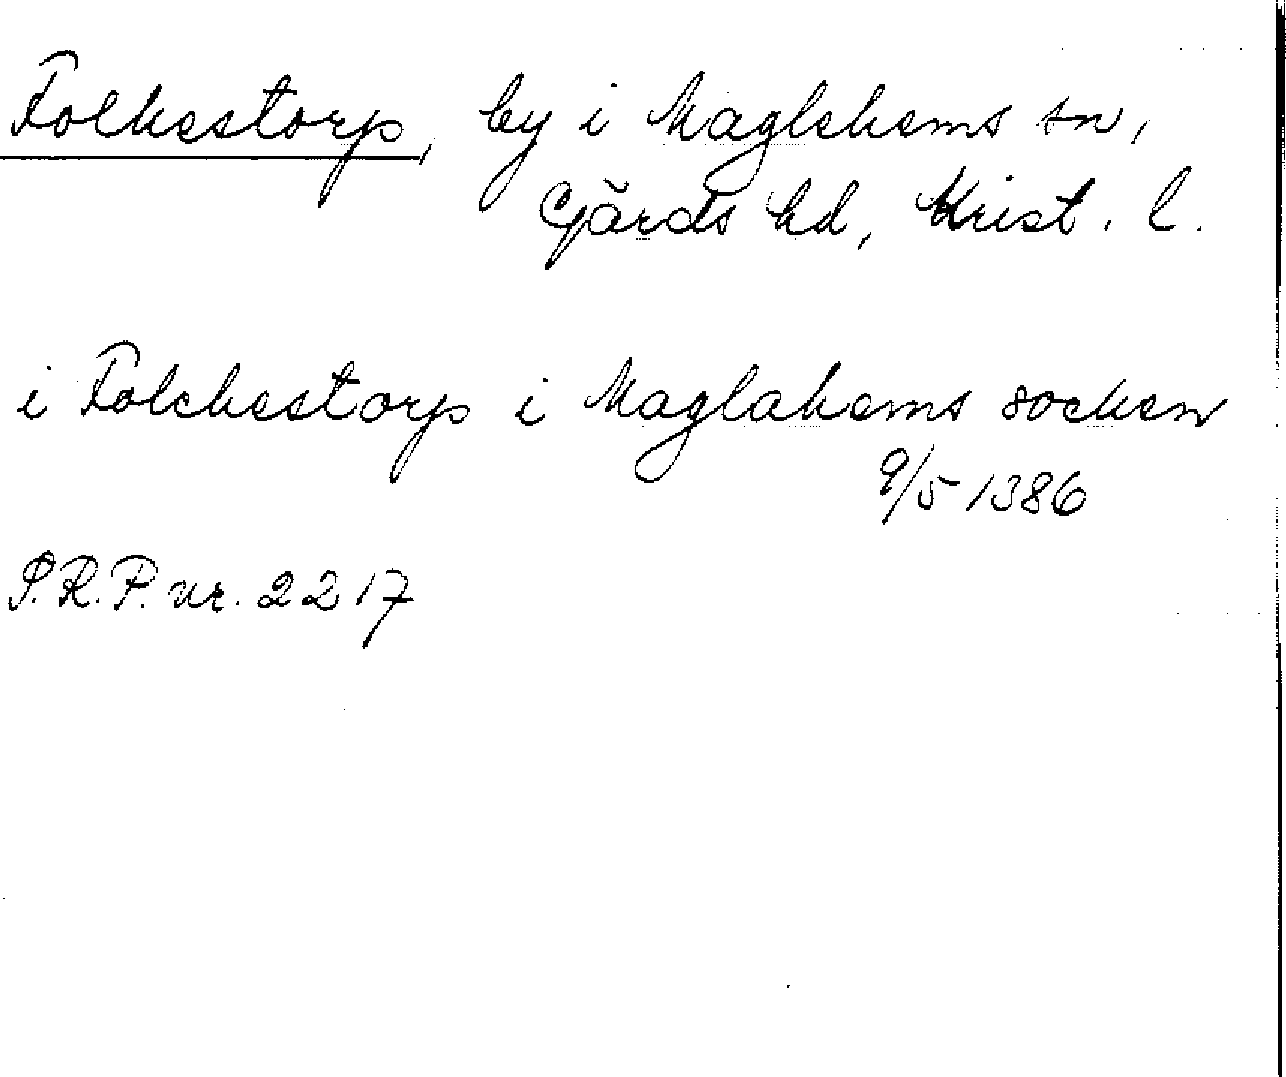 Folkestorp, by i Maglehems sn,
Gärds hd, Krist. l.
i Folchestorp i Maglahems socken
9/5 1386
S.R.P. nr. 2217